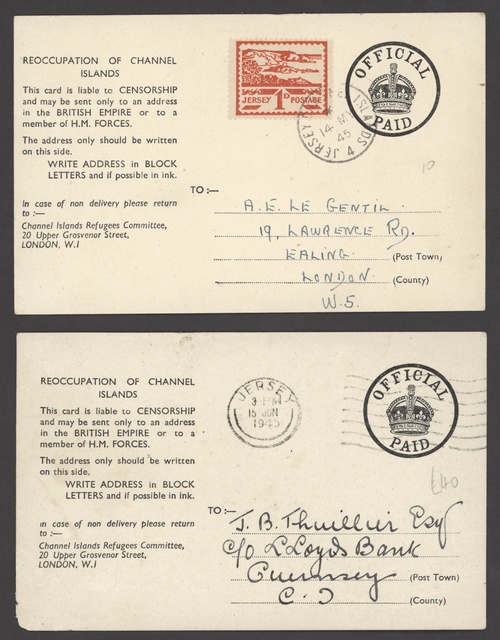 REOCCUPATION OF CHANNEL
ISLANDS
This card is liable to CENSORSHIP
and may be sent only to an address
in the BRITISH EMPIRE or to a
member of H.M. FORCES.
The address only should be written
on this side.
WRITE ADDRESS in BLOCK
LETTERS and if possible in ink.
In case of non delivery please return
to :—
Channel Islands Refugees Committee,
20 Upper Grosvenor Street,
LONDON, W.1
JERSEY 1D POSTAGE
14 MY
45
JERSEY
OFFICIAL
PAID
10
TO :—
A. E. LE GENTIL.
19, LAWRENCE RD.
EALING. (Post Town)
LONDON. (County)
W.5.
REOCCUPATION OF CHANNEL
ISLANDS
This card is liable to CENSORSHIP
and may be sent only to an address
in the BRITISH EMPIRE or to a
member of H.M. FORCES.
The address only should be written
on this side.
WRITE ADDRESS in BLOCK
LETTERS and if possible in ink.
In case of non delivery please return
to :—
Channel Islands Refugees Committee,
20 Upper Grosvenor Street,
LONDON, W.1
JERSEY
15 JUN
1945
OFFICIAL
PAID
£40
TO :—
J. B. Thuillier Esq
c/o LLoyds Bank
Guernsey (Post Town)
C. I (County)